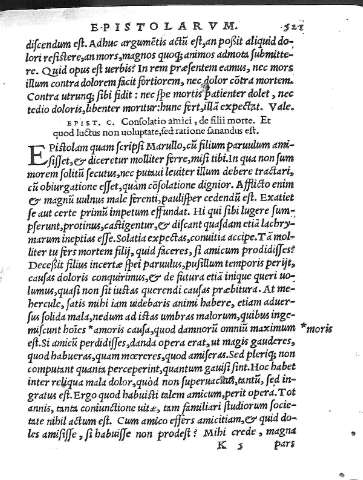 EPISTOLARVM. 521
discendum est. Adhuc argumētis actū est, an possit aliquid do-
lori resistere, an mors, magnos quoq; animos admota submitte-
re. Quid opus est uerbis? In rem præsentem eamus, nec mors
illum contra dolorem facit fortiorem, nec dolor cōtra mortem.
Contra utrunq; sibi fidit: nec spe mortis patienter dolet, nec
tedio doloris, libenter moritur: hunc fert, illā expectat. Vale.
EPIST. C. Consolatio amici, de filii morte. Et
quod luctus non uoluptate, sed ratione sanandus est.
EPistolam quam scripsi Marullo, cū filium paruulum ami-
sisset, & diceretur molliter ferre, misi tibi. In qua non sum
morem solitū secutus, nec putaui leuiter illum debere tractari,
cū obiurgatione esset, quàm cōsolatione dignior. Afflicto enim
& magnū uulnus male ferenti, paulisper cedendū est. Exatiet
se aut certe primū impetum effundat. Hi qui sibi lugere sum-
pserunt, protinus, castigentur, & discant quasdam etiā lachry-
marum ineptias esse. Solatia expectas, conuitia accipe. Tā mol-
liter tu fers mortem filij, quid faceres, si amicum prodidisses?
Decessit filius incertæ spei paruulus, pusillum temporis perijt,
causas doloris conquirimus, & de futura etiā inique queri uo-
lumus, quasi non sit iustas querendi causas præbitura. At me-
hercule, satis mihi iam uidebaris animi habere, etiam aduer-
sus solida mala, nedum ad istas umbras malorum, quibus inge-
miscunt hoīes *amoris causa, quod damnorū omniū maximum *moris
est. Si amicū perdidisses, danda opera erat, ut magis gauderes,
quod habueras, quam mœreres, quod amiseras. Sed pleriq; non
computant quanta perceperint, quantum gauisi sint. Hoc habet
inter reliqua mala dolor, quòd non superuacuus, tantū, sed in-
gratus est. Ergo quod habuisti talem amicum, perit opera. Tot
annis, tanta coniunctione uitæ, tam familiari studiorum socie-
tate nihil actum est. Cum amico effers amicitiam, & quid do-
les amisisse, si habuisse non prodest? Mihi crede, magna
K 3 pars